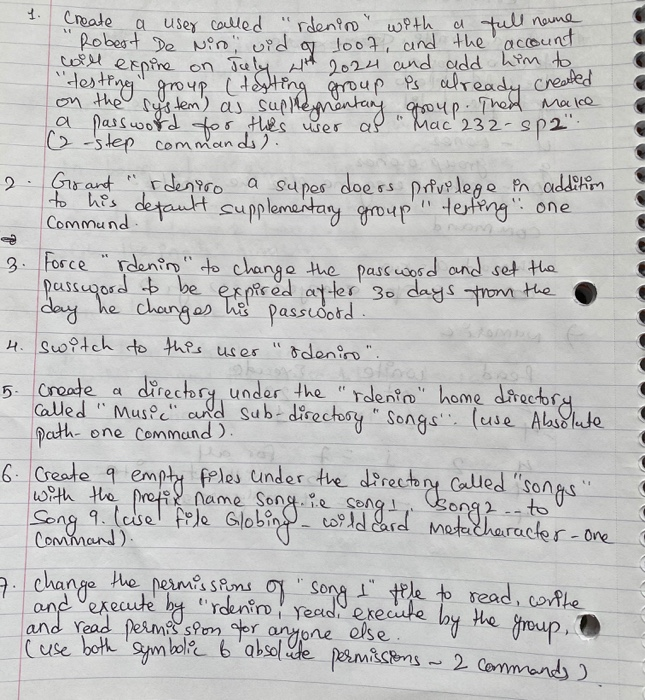 1. Create a user called "rdeniro" with a full name
"Robert De Niro", uid of 1007, and the account
will expire on July 4th 2024 and add him to
"testing" group (testing group is already created
on the system) as supplementary group. Then Make
a password for this user as "Mac 232-sp2".
(2-step commands).
2. Grant "rdeniro a super doers privilege in addition
to his default supplementary group "testing". one
Command.
3. Force "rdeniro" to change the password and set the
password to be expired after 30 days from the
day he changes his password.
4. switch to this user "rdeniro".
5. Create a directory under the "rdeniro" home directory
called "Music" and sub-directory "songs". (use Absolute
path- one command).
6. Create 9 empty files under the directory called "songs"
with the prefix name song. i.e song1, song2 -- to
Song 9. (use file Globing - wild card metacharacter - one
Command).
7. change the permissions of "song 1" file to read, write
and execute by "rdeniro, read, execute by the group,
and read permission for anyone else.
(use both symbolic & absolute permissions ~ 2 Commands)